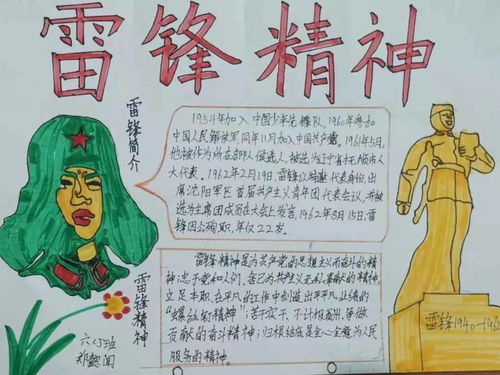 雷锋精神
雷锋简介
1954年加入中国少年先锋队,1960年参加
中国人民解放军同年11月加入中国共产党。1961年5月,
他被作为所在部队候选人,被选为辽宁省抚顺市人
大代表。1962年2月19日,雷锋以特邀代表身份,出
席沈阳军区首届共产主义青年团代表会议,并被
选为主席团成员在大会上发言。1962年8月15日,雷
锋因公殉职,年仅22岁。
雷锋精神是为共产党的思想主义而奋斗的精
神;忠于党和人们、舍己为共产主义无私奉献的精神
立足本职、在平凡的工作中创造出不平凡业绩的
“螺丝钉精神”;苦干实干、不计报酬,争做
贡献的奋斗精神;归根结底是全心全意为人民
服务的精神。
雷锋精神
六(5)班
雷锋1940-196